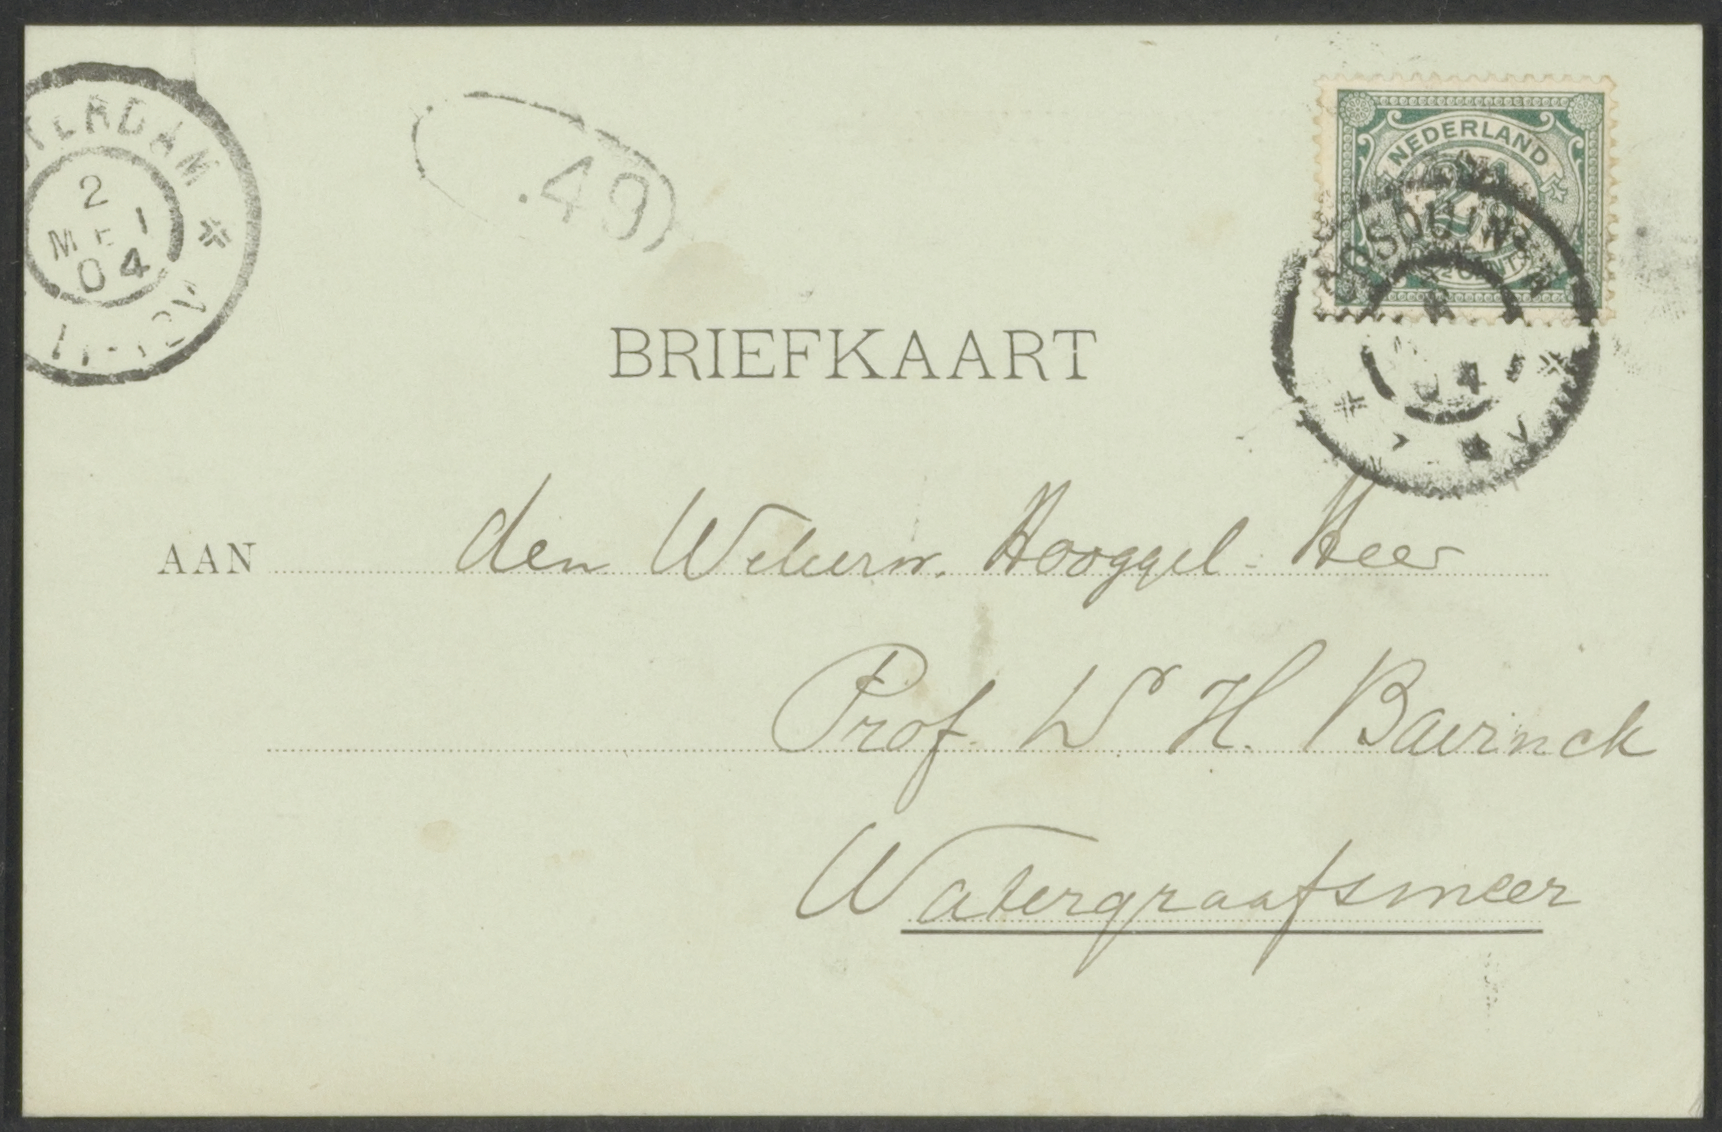 TERDAM
2
MEI
04
11-12V
.49
NEDERLAND
2½ CENT
OOSDUINEN
04
V
BRIEFKAART
AAN den Weleerw. Hooggel. Heer
Prof. Dr H. Bavinck
Watergraafsmeer